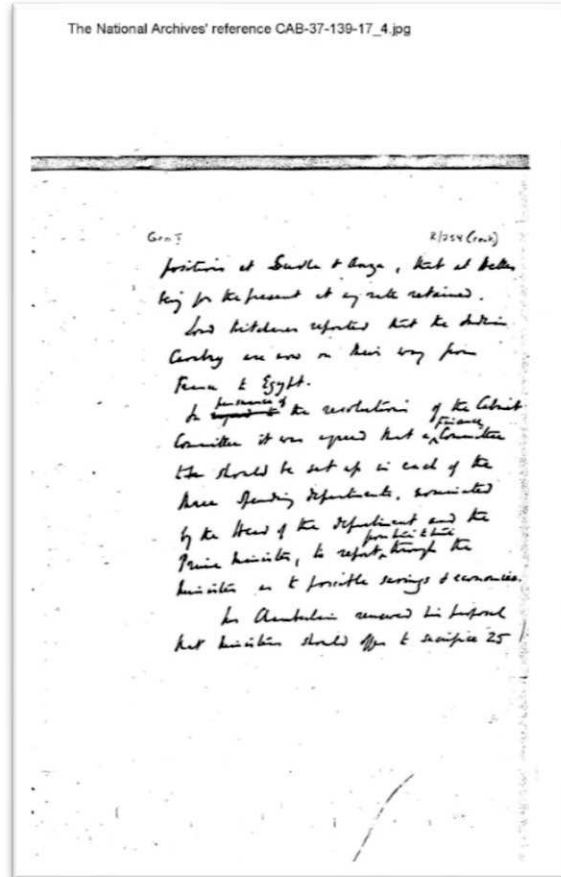 The National Archives' reference CAB-37-139-17_4.jpg
positions at Suvla & Anzac, that at Helles
being for the present at any rate retained.
Lord Kitchener reported that the Indian
Cavalry are now on their way from
France to Egypt.
In pursuance of the resolutions of the Cabinet
Committee it was agreed that a Finance Committee
should be set up in each of the
three spending departments, nominated
by the Head of the department and the
Prime Minister, to report from time to time through the
Minister as to possible savings & economies.
Mr Chamberlain renewed his proposal
that Ministers should offer to sacrifice 25